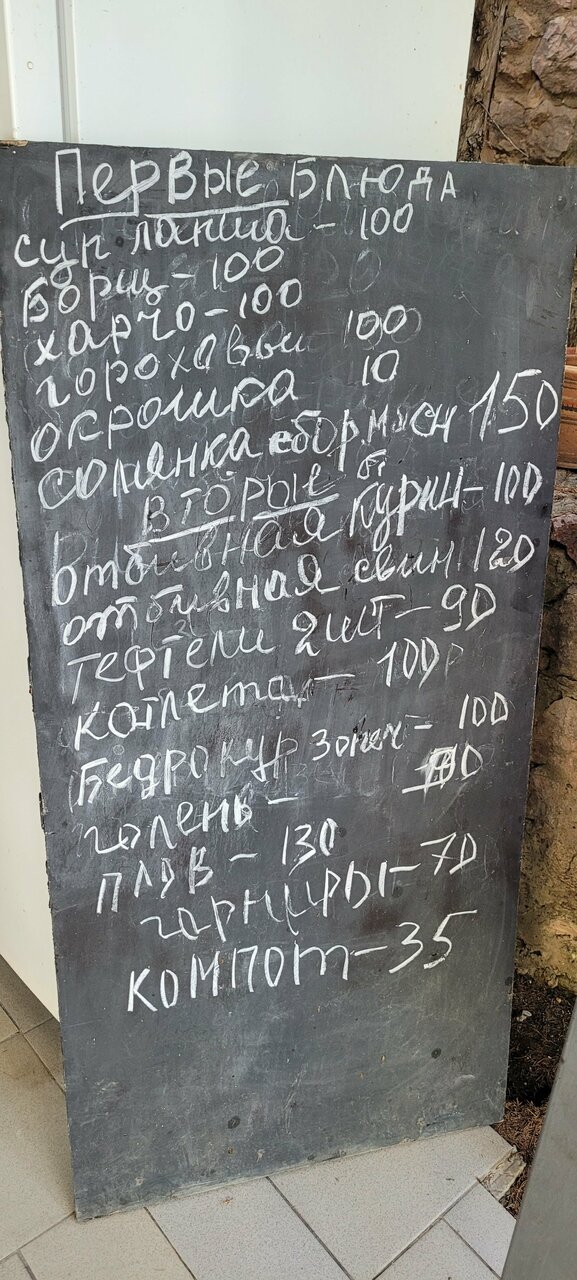 Первые блюда
суп лапша - 100
Борщ - 100
харчо - 100
гороховый 100
окрошка 10
солянка сбор мясн 150
Вторые б
отбивная курин - 100
отбивная свин 120
тефтели 2шт - 90
котлета - 100р
Бедро кур запеч - 100
голень -
плов - 130
гарниры - 70
компот - 35